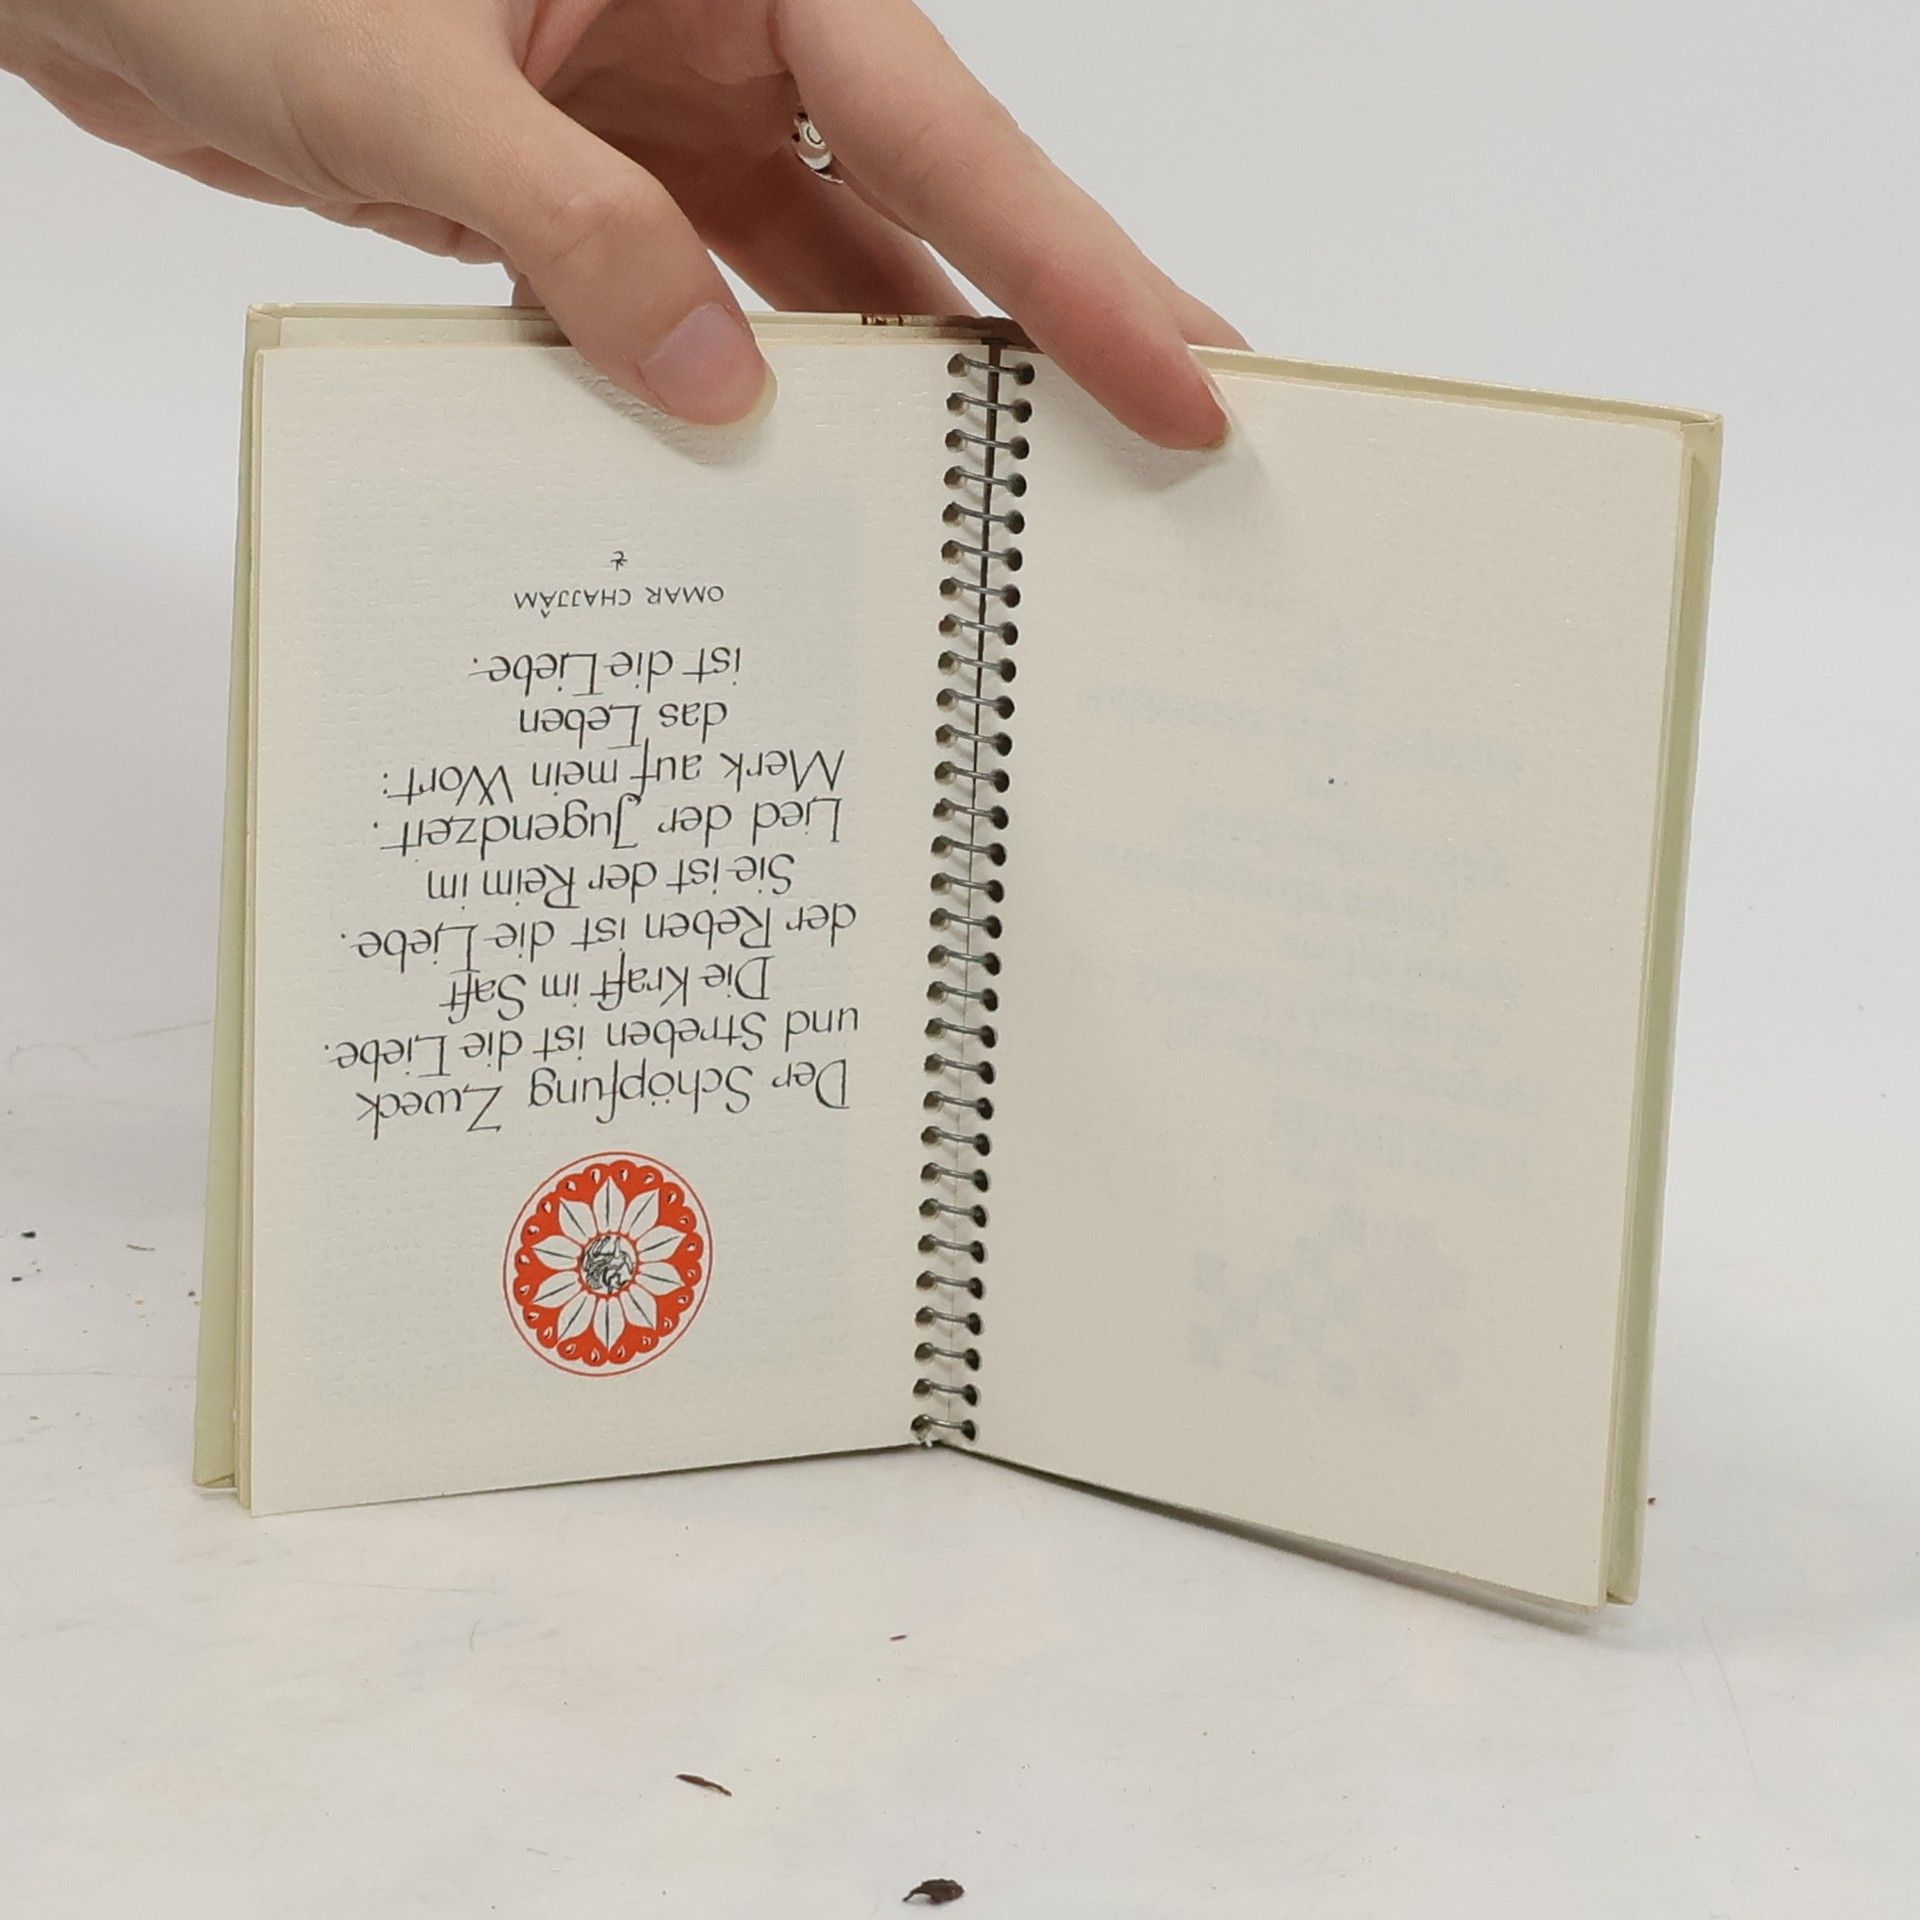 Der Schöpfung Zweck
und Streben ist die Liebe.
Die Kraft im Saft
der Reben ist die Liebe.
Sie ist der Reim im
Lied der Jugendzeit.
Merk auf mein Wort:
das Leben
ist die Liebe.
OMAR CHAJJÂM